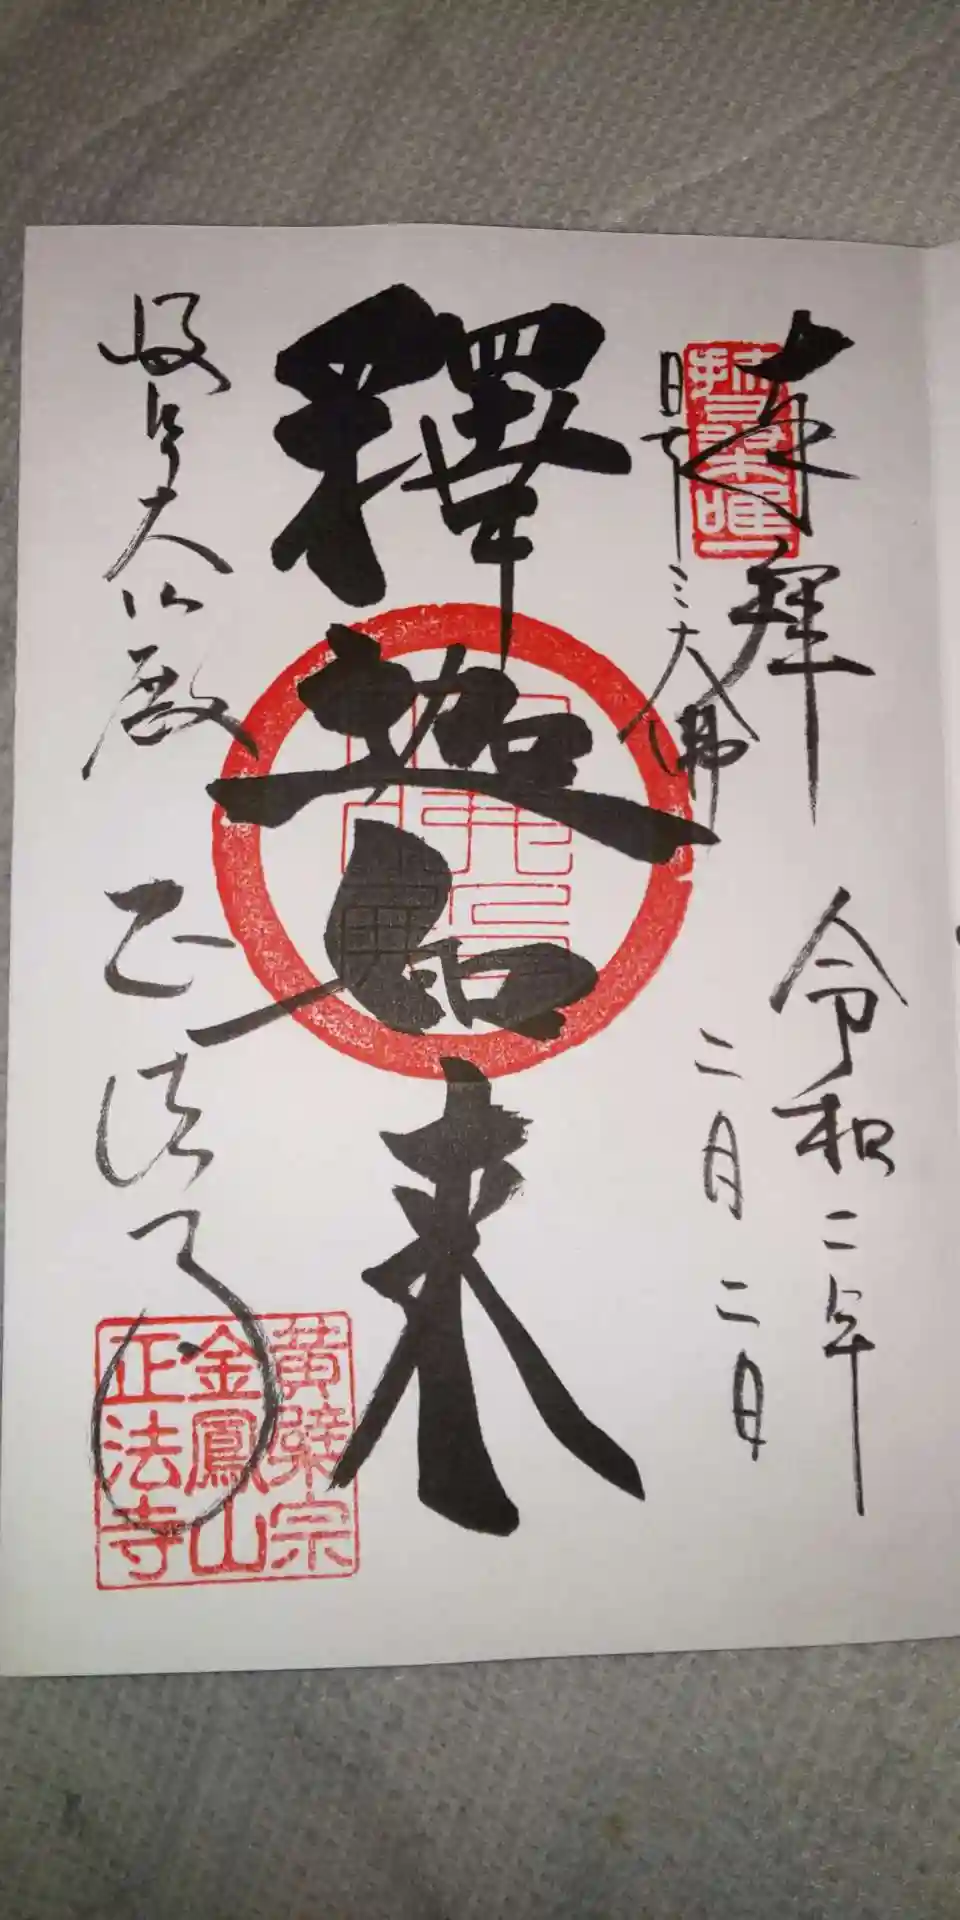 奉拝
令和二年
日本三大佛
二月二日
釋迦如来
岐阜大仏殿
正法寺
黄檗宗
金鳳山
正法寺